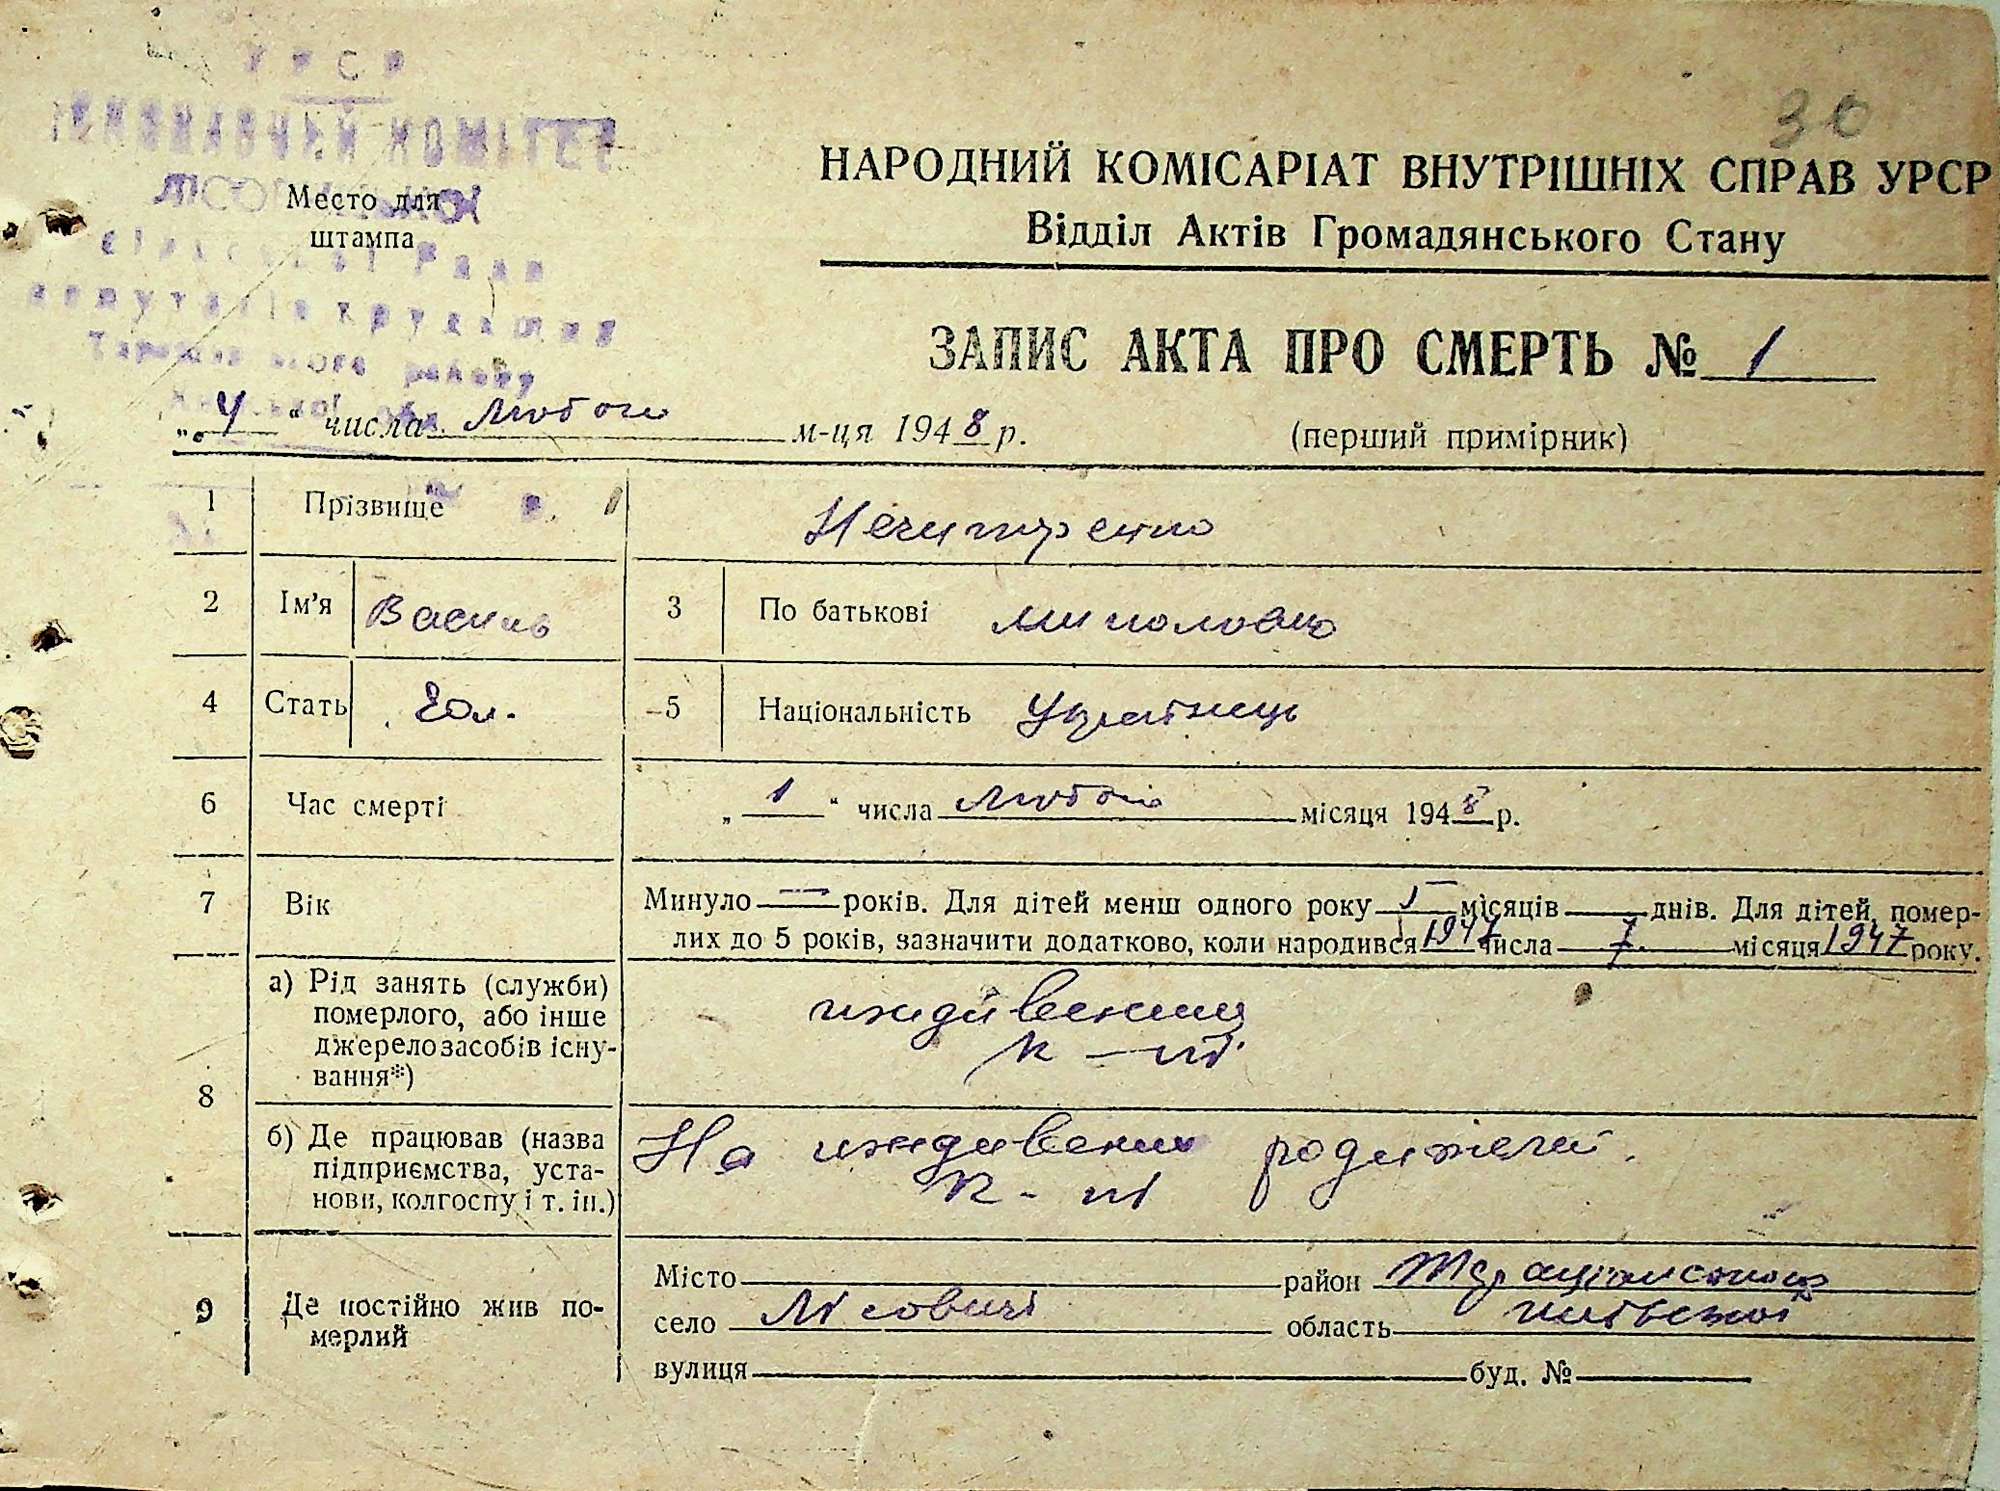 УРСР
ВИКОНАВЧИЙ КОМІТЕТ
ЛІСОВИЦЬКОЇ
Сільської Ради
депутатів трудящих
Таращанського району
Київської обл.
30
Место для
штампа
НАРОДНИЙ КОМІСАРІАТ ВНУТРІШНІХ СПРАВ УРСР
Відділ Актів Громадянського Стану
ЗАПИС АКТА ПРО СМЕРТЬ № 1
„4“ числа Лютого м-ця 1948 р.
(перший примірник)
1 Прізвище Нечипренко
2 Ім'я Василь 3 По батькові Миколович
4 Стать Чол. 5 Національність Українець
6 Час смерті „1“ числа Лютого місяця 1948 р.
7 Вік Минуло — років. Для дітей менш одного року місяців — днів. Для дітей, помер-
лих до 5 років, зазначити додатково, коли народився 1947 числа 7. місяця 1947 року.
8 а) Рід занять (служби) померлого, або інше джерело засобів існування*)
иждівениц
к-пі
б) Де працював (назва підприємства, установи, колгоспу і т. ін.)
На иждивении родителей.
к-пі
9 Де постійно жив померлий
Місто — район Таращанського
село Лісовичі область Київської
вулиця — буд. № —